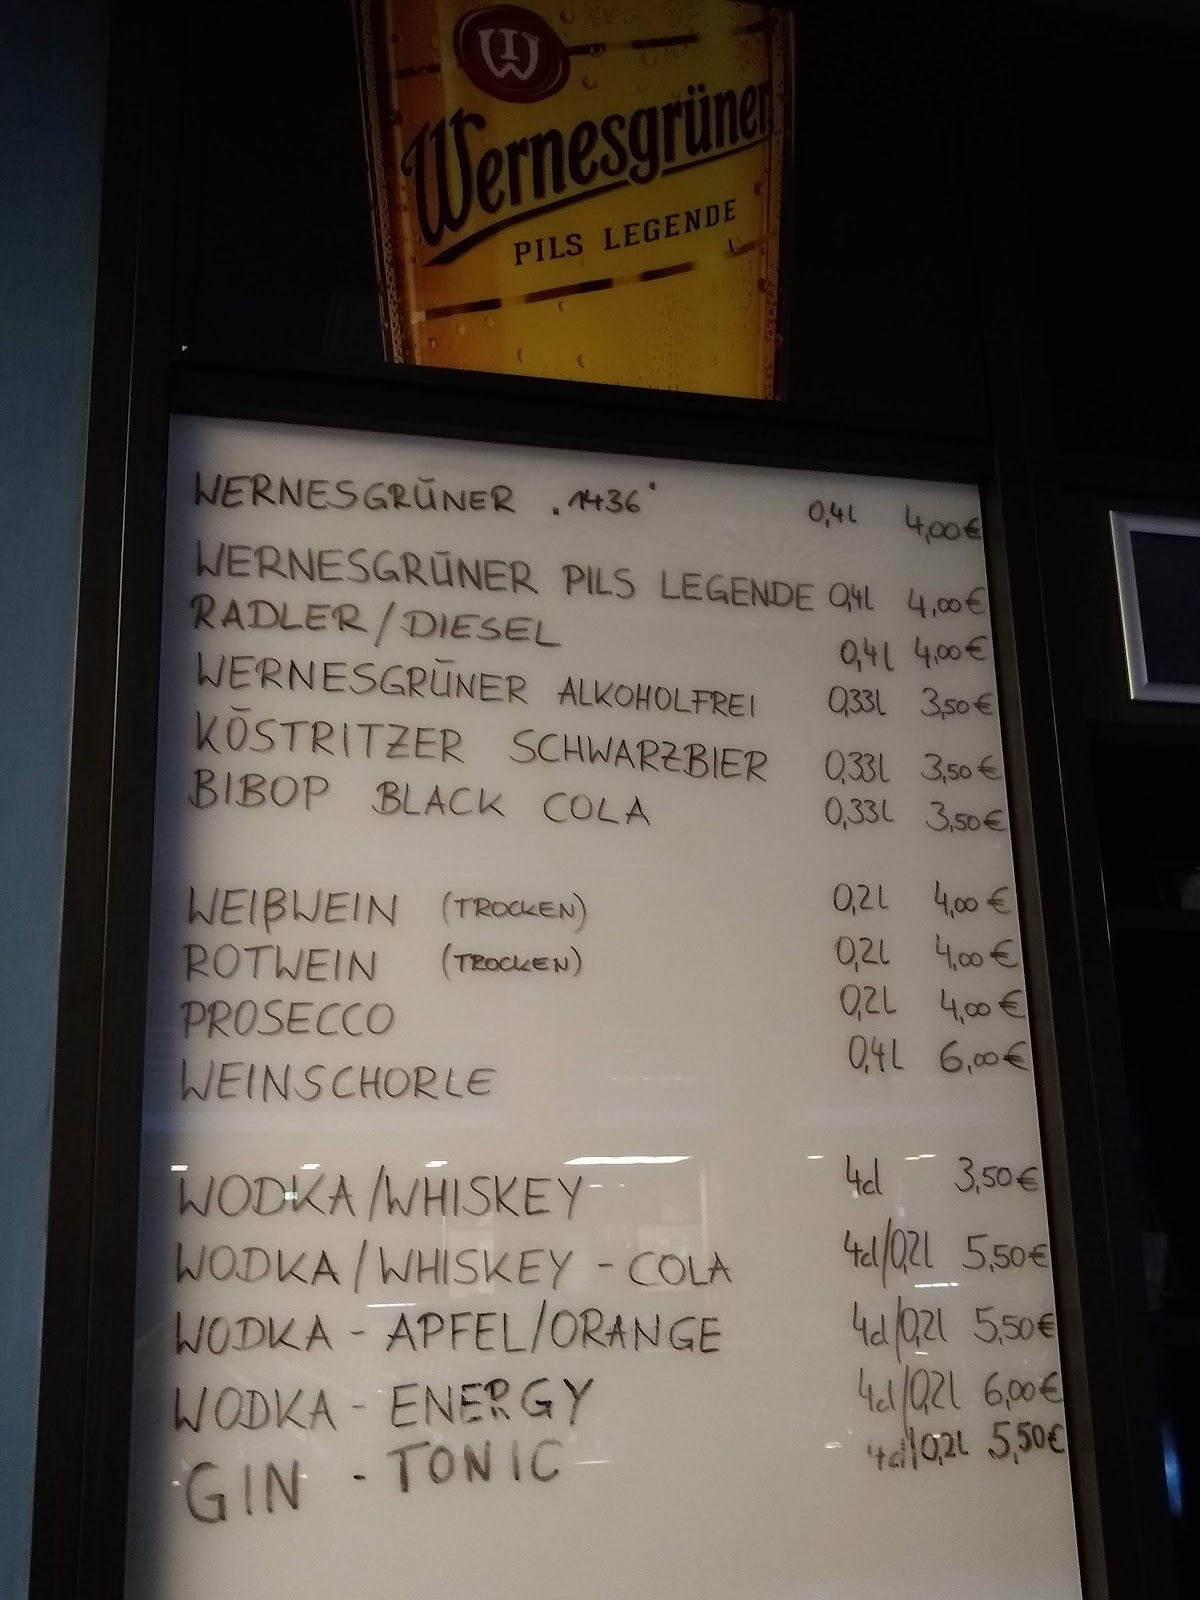 W
Wernesgrüner
PILS LEGENDE
WERNESGRÜNER "1436" 0,4l 4,00€
WERNESGRÜNER PILS LEGENDE 0,4l 4,00€
RADLER/DIESEL 0,4l 4,00€
WERNESGRÜNER ALKOHOLFREI 0,33l 3,50€
KÖSTRITZER SCHWARZBIER 0,33l 3,50€
BIBOP BLACK COLA 0,33l 3,50€
WEIßWEIN (TROCKEN) 0,2l 4,00€
ROTWEIN (TROCKEN) 0,2l 4,00€
PROSECCO 0,2l 4,00€
WEINSCHORLE 0,4l 6,00€
WODKA/WHISKEY 4cl 3,50€
WODKA/WHISKEY - COLA 4cl/0,2l 5,50€
WODKA - APFEL/ORANGE 4cl/0,2l 5,50€
WODKA - ENERGY 4cl/0,2l 6,00€
GIN - TONIC 4cl/0,2l 5,50€